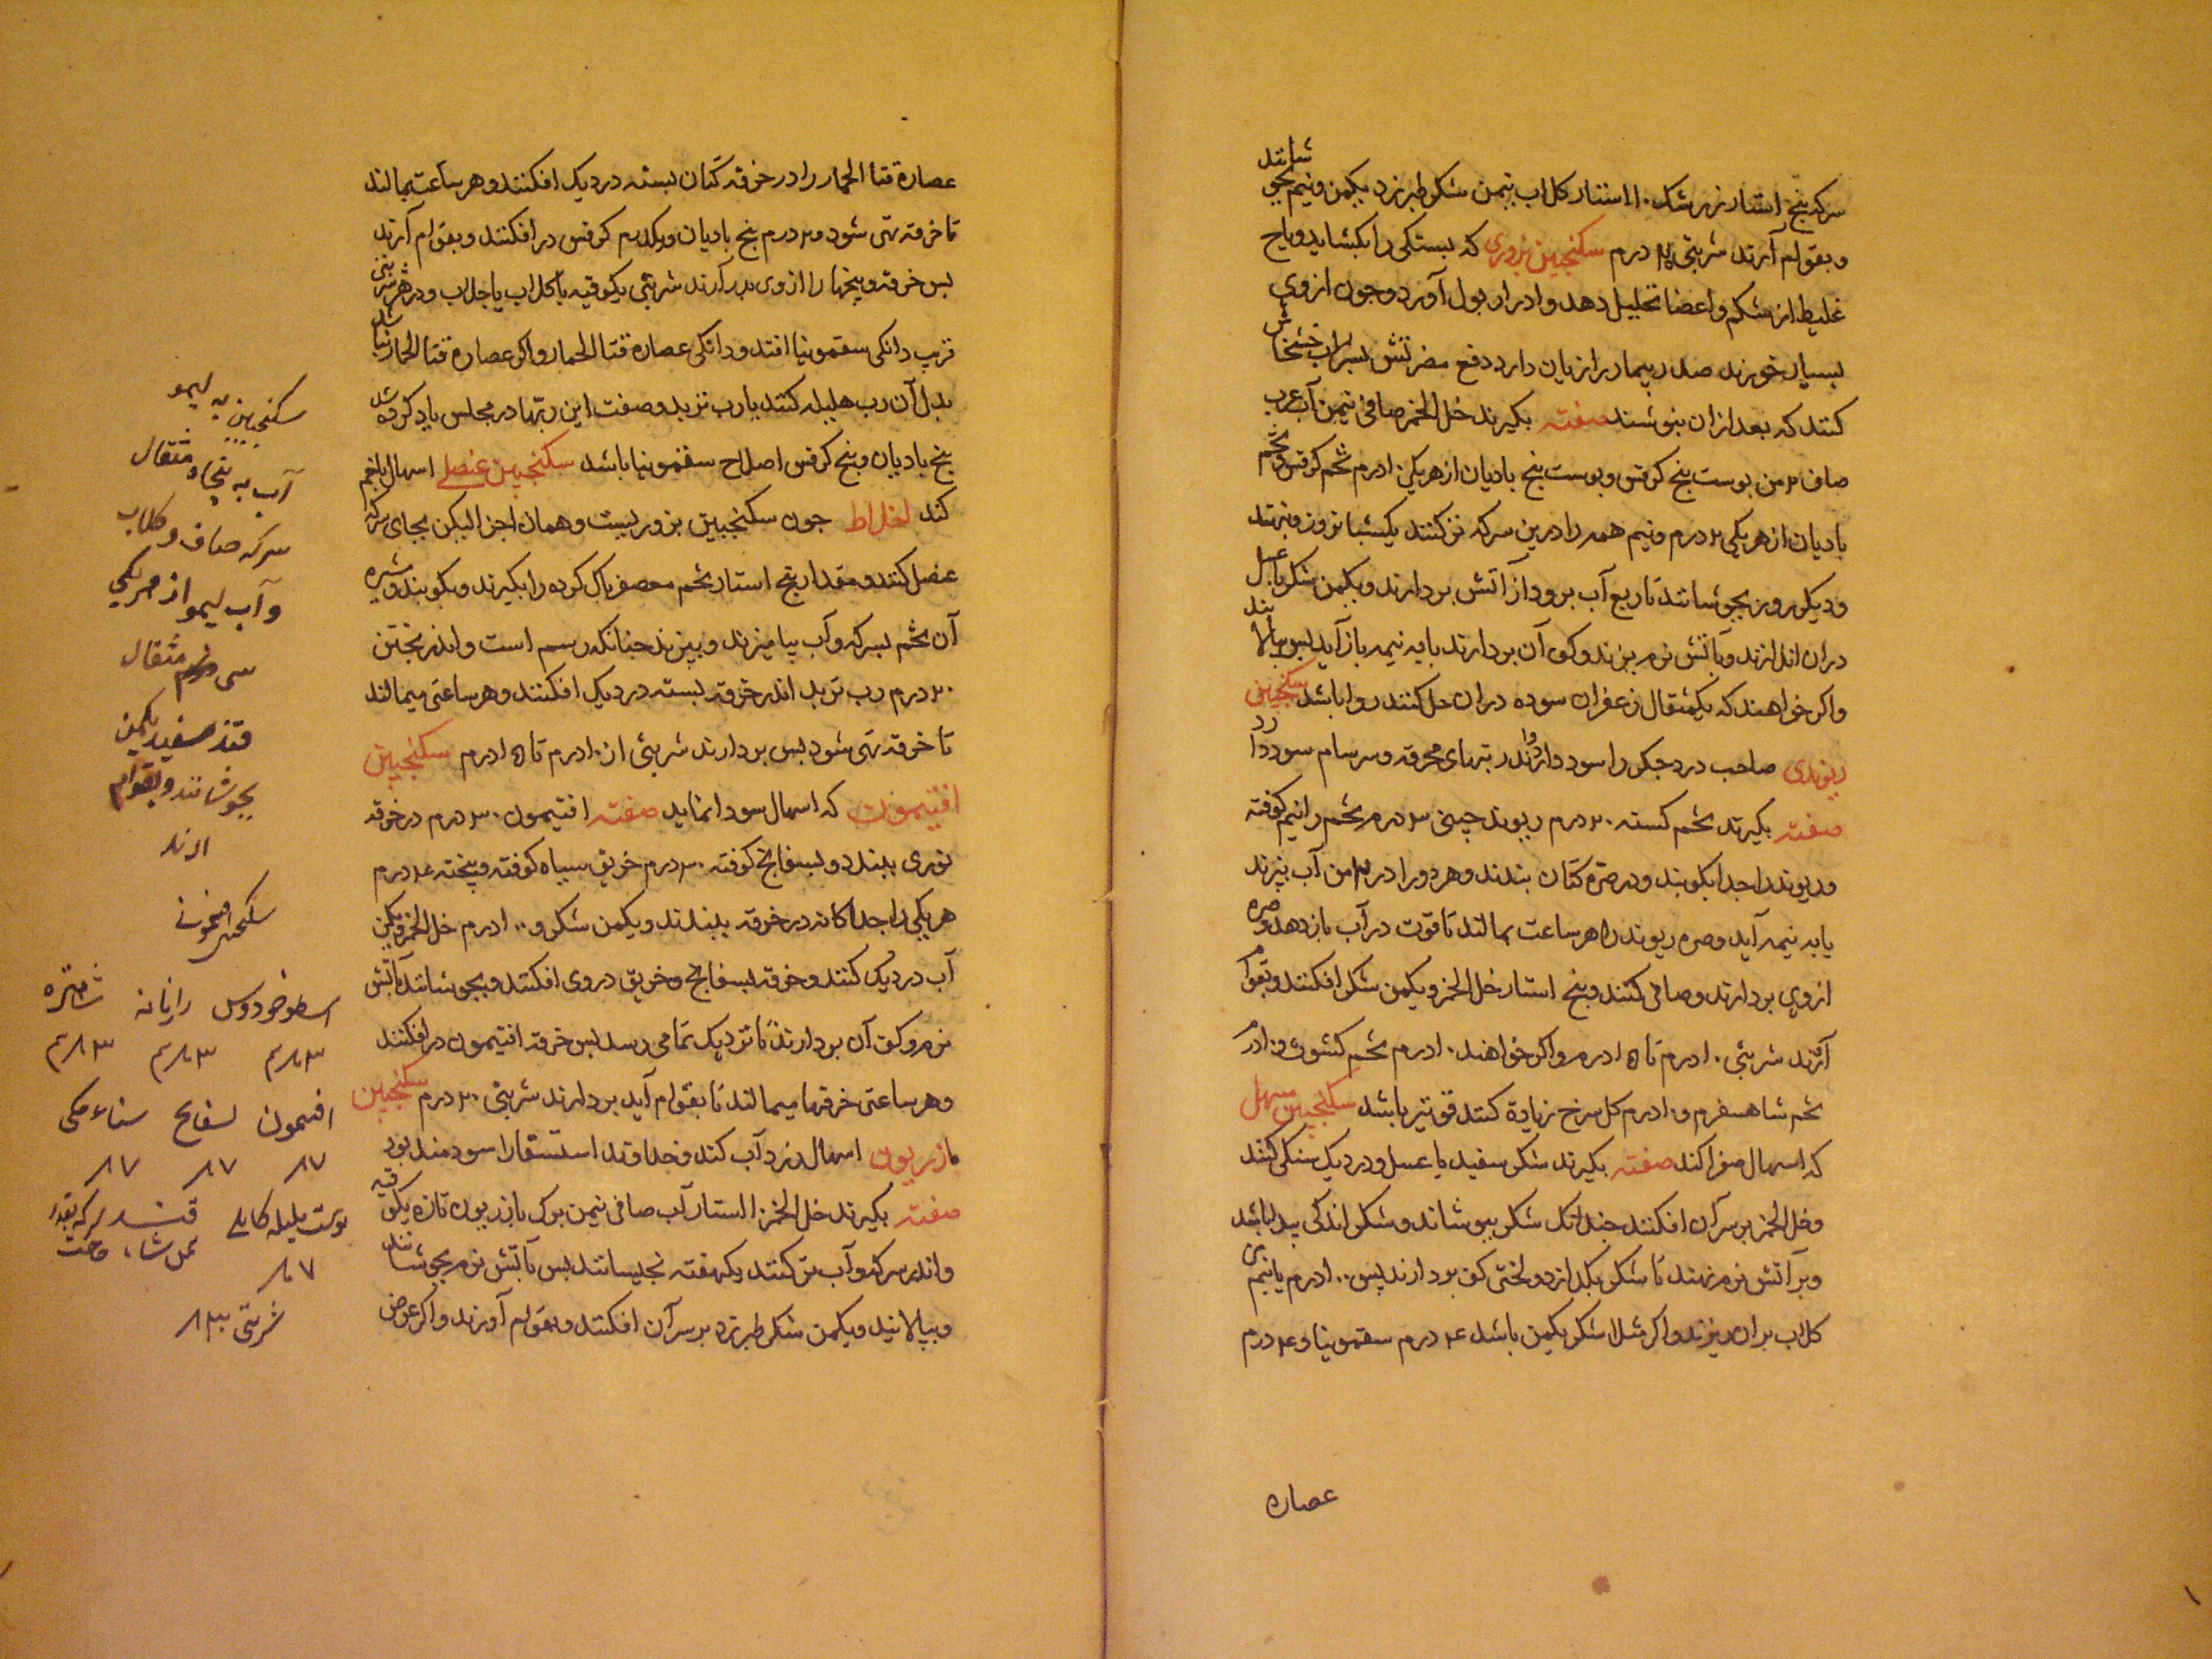 سرکه پنج استار زرشک ۱۰ استار کلاب نیمن شکر طبرزد یکمن و نیم بجو
شانند
و بقوام آرند شربتی درم سکنجبین بزوری که بستکی را بکشاید و ریاح
غلیظ از شکم و اعضا تحلیل دهد و ادرار بول آورد و جون از وی
بسیار خورند صدر بیمار را زیان دارد دفع مضرتش بشراب خشخاش
کنند که بعد از ان بنوشند صفته بکیرند خل الخمر صافی نیمن آب عرب
صاف ۲ من بوست بیخ کرفس و بوست بیخ بادیان از هر یکی ۱۰ درم تخم کرفس و تخم
بادیان از هر یکی ۲ درم و نیم همه را درین سرکه تر کنند یکشبانروز و نهند
و دیکر روز بجوشانند تا ربع آب برود از آتش بردارند و یکمن شکر یا عسل
دران اندازند و بآتش نرم بزند و کف آن بردارند تا به نیمه باز آید بس ببالایند
و اکر خواهند که یکمثقال زعفران سوده دران حل کنند روا باشد سکنجبین
ریوندی صاحب درد جکر را سود دارد و اندر تبهای محرقه و سرسام سود دارد
صفته بکیرند تخم کسنه ۲۰ درم ریوند چینی ۳ درم تخم را نیم کوفته
و ریوند را جدا بکوبند و در صره کتان بندند و هر دو را در ۲ من آب بپزند
تا به نیمه آید و صره ریوند را هر ساعت بمالند تا قوت در آب باز دهد و صره
از وی بردارند و صافی کنند و پنج استار خل الخمر و یکمن شکر افکنند و بقوام
آرند شربتی ۱۰ درم تا ۱۵ درم و اکر خواهند ۱۰ درم تخم کشوث و ۱۰ درم
تخم شاهسفرم و ۱۰ درم کل سرخ زیادة کنند قوتیر باشد سکنجبین مسهل
که اسهال صفرا کند صفته بکیرند شکر سفید یا عسل و در دیک سنکی کنند
و خل الخمر بر سر آن افکنند جندانک شکر ببوشاند و شکر اندکی پیدا باشد
و بر آتش نرم نهند تا شکر بکدازد و لختی کف بردارند پس ۱۰۰ درم یا نیم
کلاب بران ریزند و اکر مثلا شکر یکمن باشد ۴ درم سقمونیا و ۴ درم
عصاره
عصارة قثا الحمار را در خرقه کتان بسته در دیک افکنند و هر ساعت بمالند
تا خرقه تهی شود و ۲ درم بیخ بادیان و یکدرم کرفس در افکنند و بقوام آرند
بس خرقه و بیخها را از وی بدر آرند شربتی یکوقیه با کلاب یا جلاب و در هر شربتی
قریب دانکی سقمونیا افتد و دانکی عصاره قثا الحمار و اکر عصاره قثا الحمار نباشد
بدل آن رب هلیله کنند یا رب تربد و صفت این ربها در مجلس یاد کرده شد
بیخ بادیان و بیخ کرفس اصلاح سقمونیا باشد سکنجبین عنصلی اسهال بلغم
کند اخلاط جون سکنجبین بزوریست و همان اجزا لیکن بجای سرکه
عنصل کنند و مقدار پنج استار تخم معصفر پاک کرده را بکیرند و بکوبند و شیره
آن تخم بسرکه و آب بیامیزند و ببزند جنانکه رسم است و اندر پختن
۲۰ درم رب تربد اندر خرقه بسته در دیک افکنند و هر ساعتی میمالند
تا خرقه تهی شود بس بردارند شربتی از ۱۰ درم تا ۱۵ درم سکنجبین
افتیمون که اسهال سودا نماید صفته افتیمون ۳۰ درم در خرقه
توری ببندد و بسفایج کوفته ۳۰ درم خربق سیاه کوفته و پخته ۴ درم
هر یکی را جداکانه در خرقه ببندند و یکمن شکر و ۱۰۰ درم خل الخمر و یکمن
آب در دیک کنند و خرقه بسفایج و خربق در وی افکنند و بجوشانند بآتش
نرم و کف آن بردارند تا نزدیک تمامی رسد بس خرقه افتیمون در افکنند
و هر ساعتی خرقها میمالند تا بقوام آید بردارند شربتی ۲۰ درم سکنجبین
مازریون اسهال زرد آب کند و خداوند استسقا را سودمند بود
صفته بکیرند خل الخمر ۱۰ استار آب صافی نیمن برک مازریون تازه یکوقیه
و اندر سرکه و آب تر کنند یکهفته بخیسانند بس بآتش نرم بجوشانند
و ببالایند و یکمن شکر طبرزد بر سر آن افکنند و بقوام آورند و اکر عوض
سکنجبین به لیمو
آب به پنجاه مثقال
سرکه صاف و کلاب
و آب لیمو از هر یکی
سی مثقال
قند سفید یکمن
بجوشانند و بقوام
ارند
اسطوخودوس رازیانه شاهتره
افتیمون بسفایج سناء مکی
پوست هلیله کابلی قند سرکه بقدر
شربتی